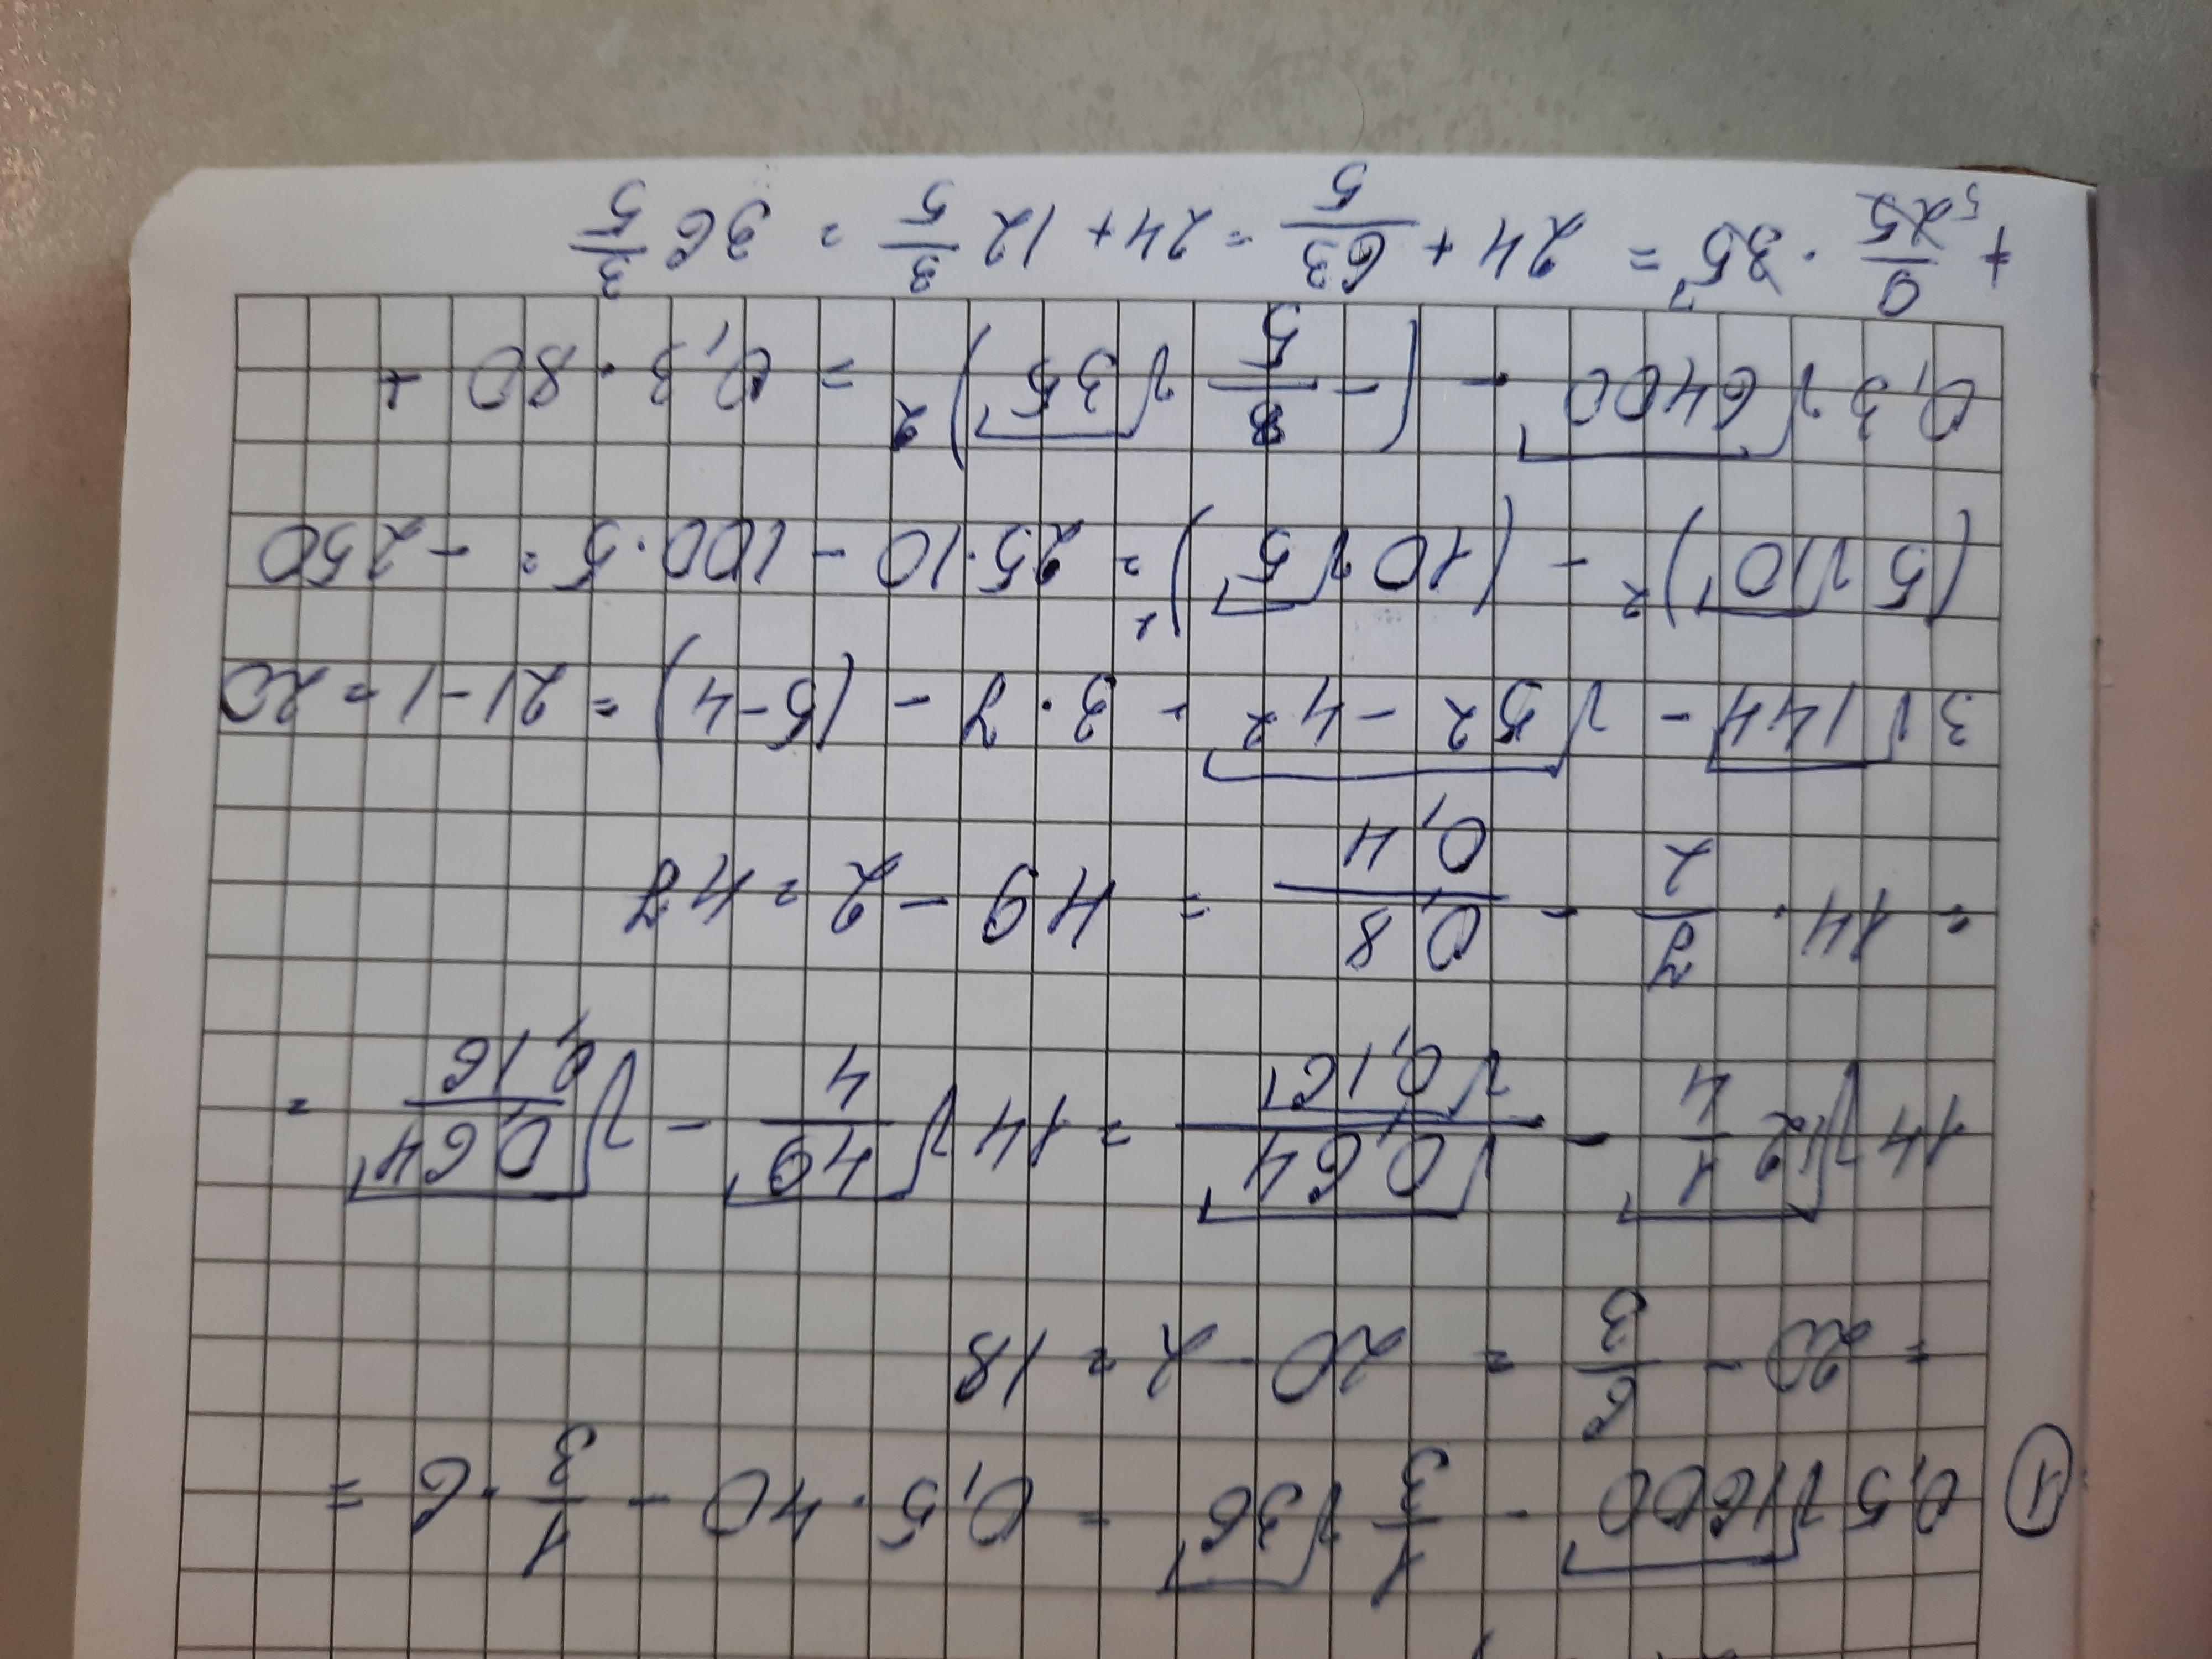 ① 0,5√1600 - 1/3 √36 = 0,5 · 40 - 1/3 · 6 =
= 20 - 6/3 = 20 - 2 = 18
14√(12 1/4) - √0,64/√0,16 = 14√(49/4) - √(0,64/0,16) =
= 14 · 7/2 - 0,8/0,4 = 49 - 2 = 47
3√144 - √(5² - 4²) = 3 · 7 - (5 - 4) = 21 - 1 = 20
(5√10)² - (10√5)² = 25·10 - 100·5 = - 250
0,3√6400 - (- 3/5 √35)² = 0,3 · 80 +
+ 9/25 · 35 = 24 + 63/5 = 24 + 12 3/5 = 36 3/5